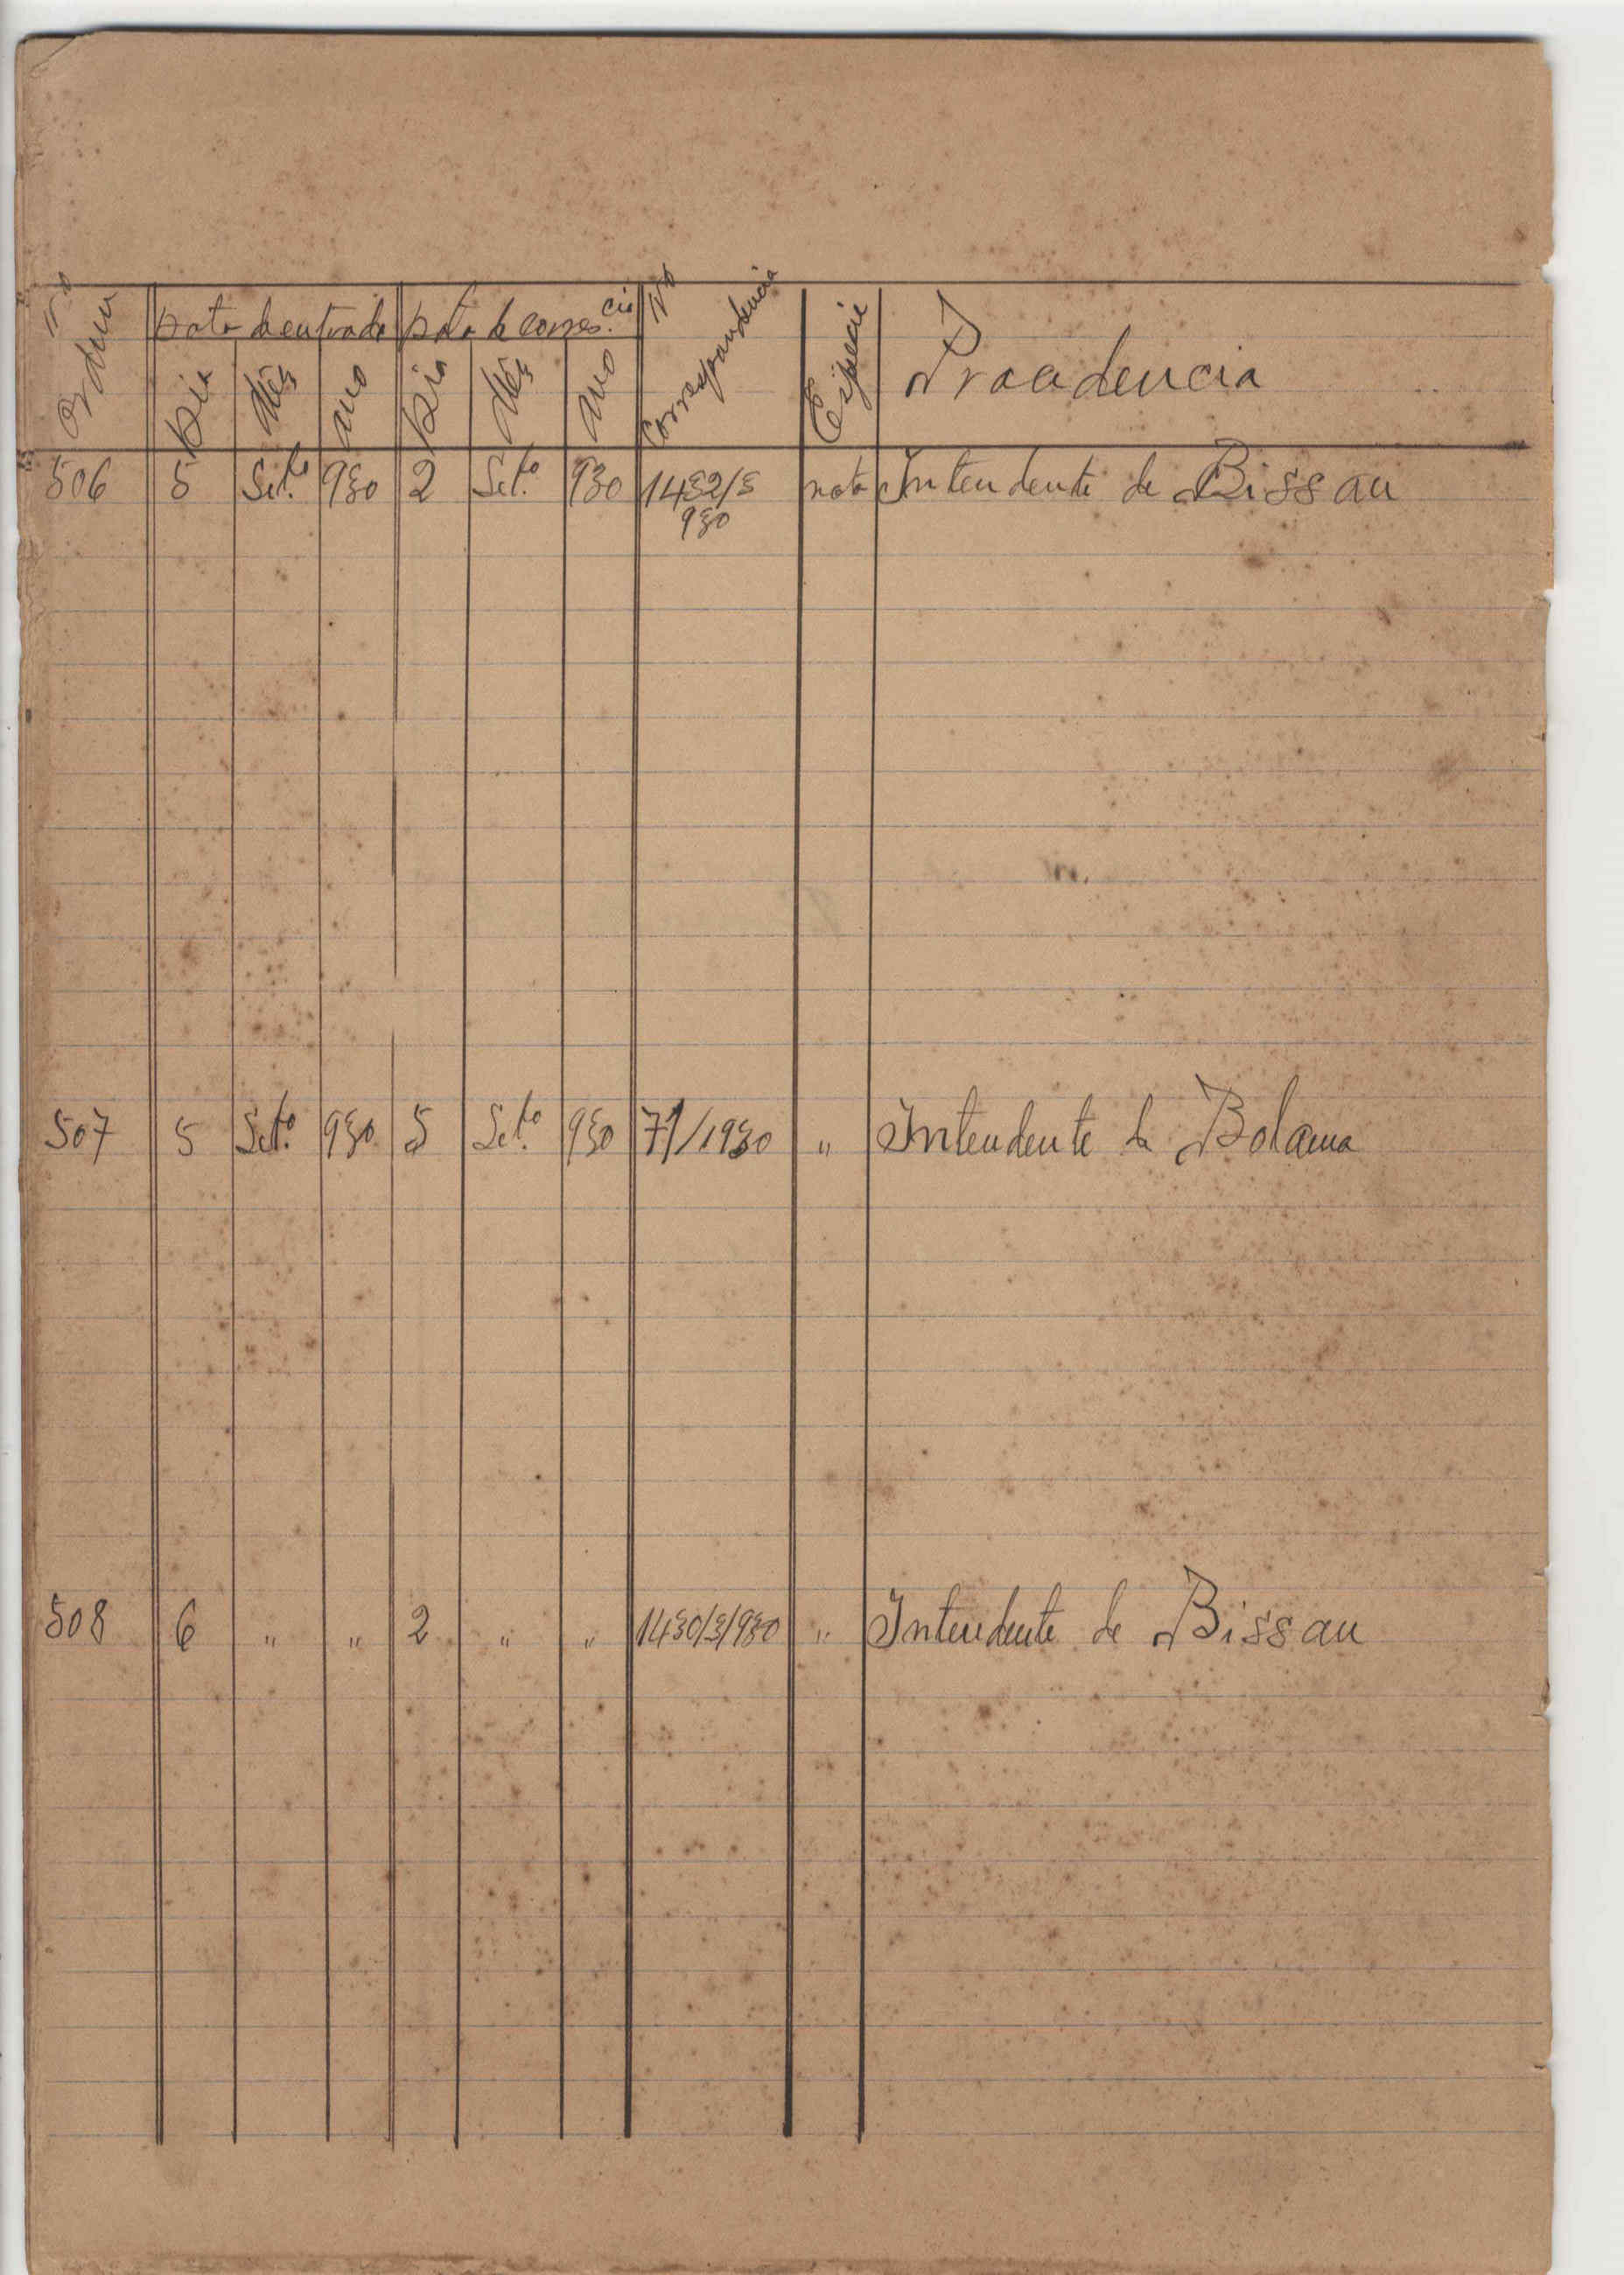 Nº Ordem Data de entrada Data de corres.cia Nº Correspondencia Especie Procedencia
Dia Mês Ano Dia Mês Ano
506 5 Set.º 930 2 Set.º 930 1432/3 nota Intendente de Bissau
930
507 5 Set.º 930 5 Set.º 930 71/1930 " Intendente de Bolama
508 6 " " 2 " " 1430/3/930 " Intendente de Bissau